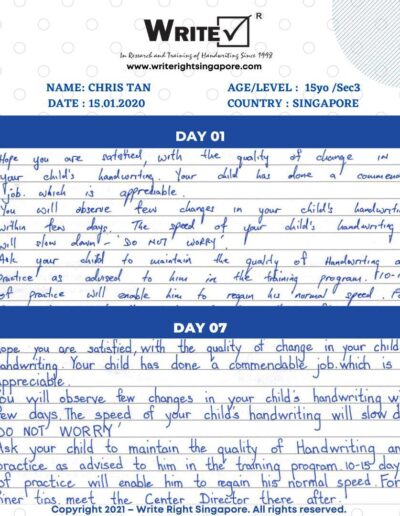 WRITE
R
In Research and Training of Handwriting Since 1998
www.writerightsingapore.com
NAME: CHRIS TAN
AGE/LEVEL : 15yo /Sec3
DATE : 15.01.2020
COUNTRY : SINGAPORE
DAY 01
Hope you are satisfied, with the quality of change in
your child's handwriting. Your child has done a commend
job. which is appreciable.
You will observe few changes in your child's handwriti
within few days. The speed of your child's handwriting
will slow down - 'DO NOT WORRY'.
Ask your child to maintain the quality of Handwriting a
practice as advised to him in the training program. 10-1
of practice will enable him to regain his normal speed. Fo
DAY 07
ope you are satisfied, with the quality of change in your child
andwriting. Your child has done a commendable job. which is
ppreciable.
ou will observe few changes in your child's handwriting w
few days. The speed of your child's handwriting will slow d
DO NOT WORRY'
Ask your child to maintain the quality of Handwriting an
practice as advised to him in the training program. 10-15 day
of practice will enable him to regain his normal speed. For
iner tips, meet the Center Director there after.
Copyright 2021 – Write Right Singapore. All rights reserved.